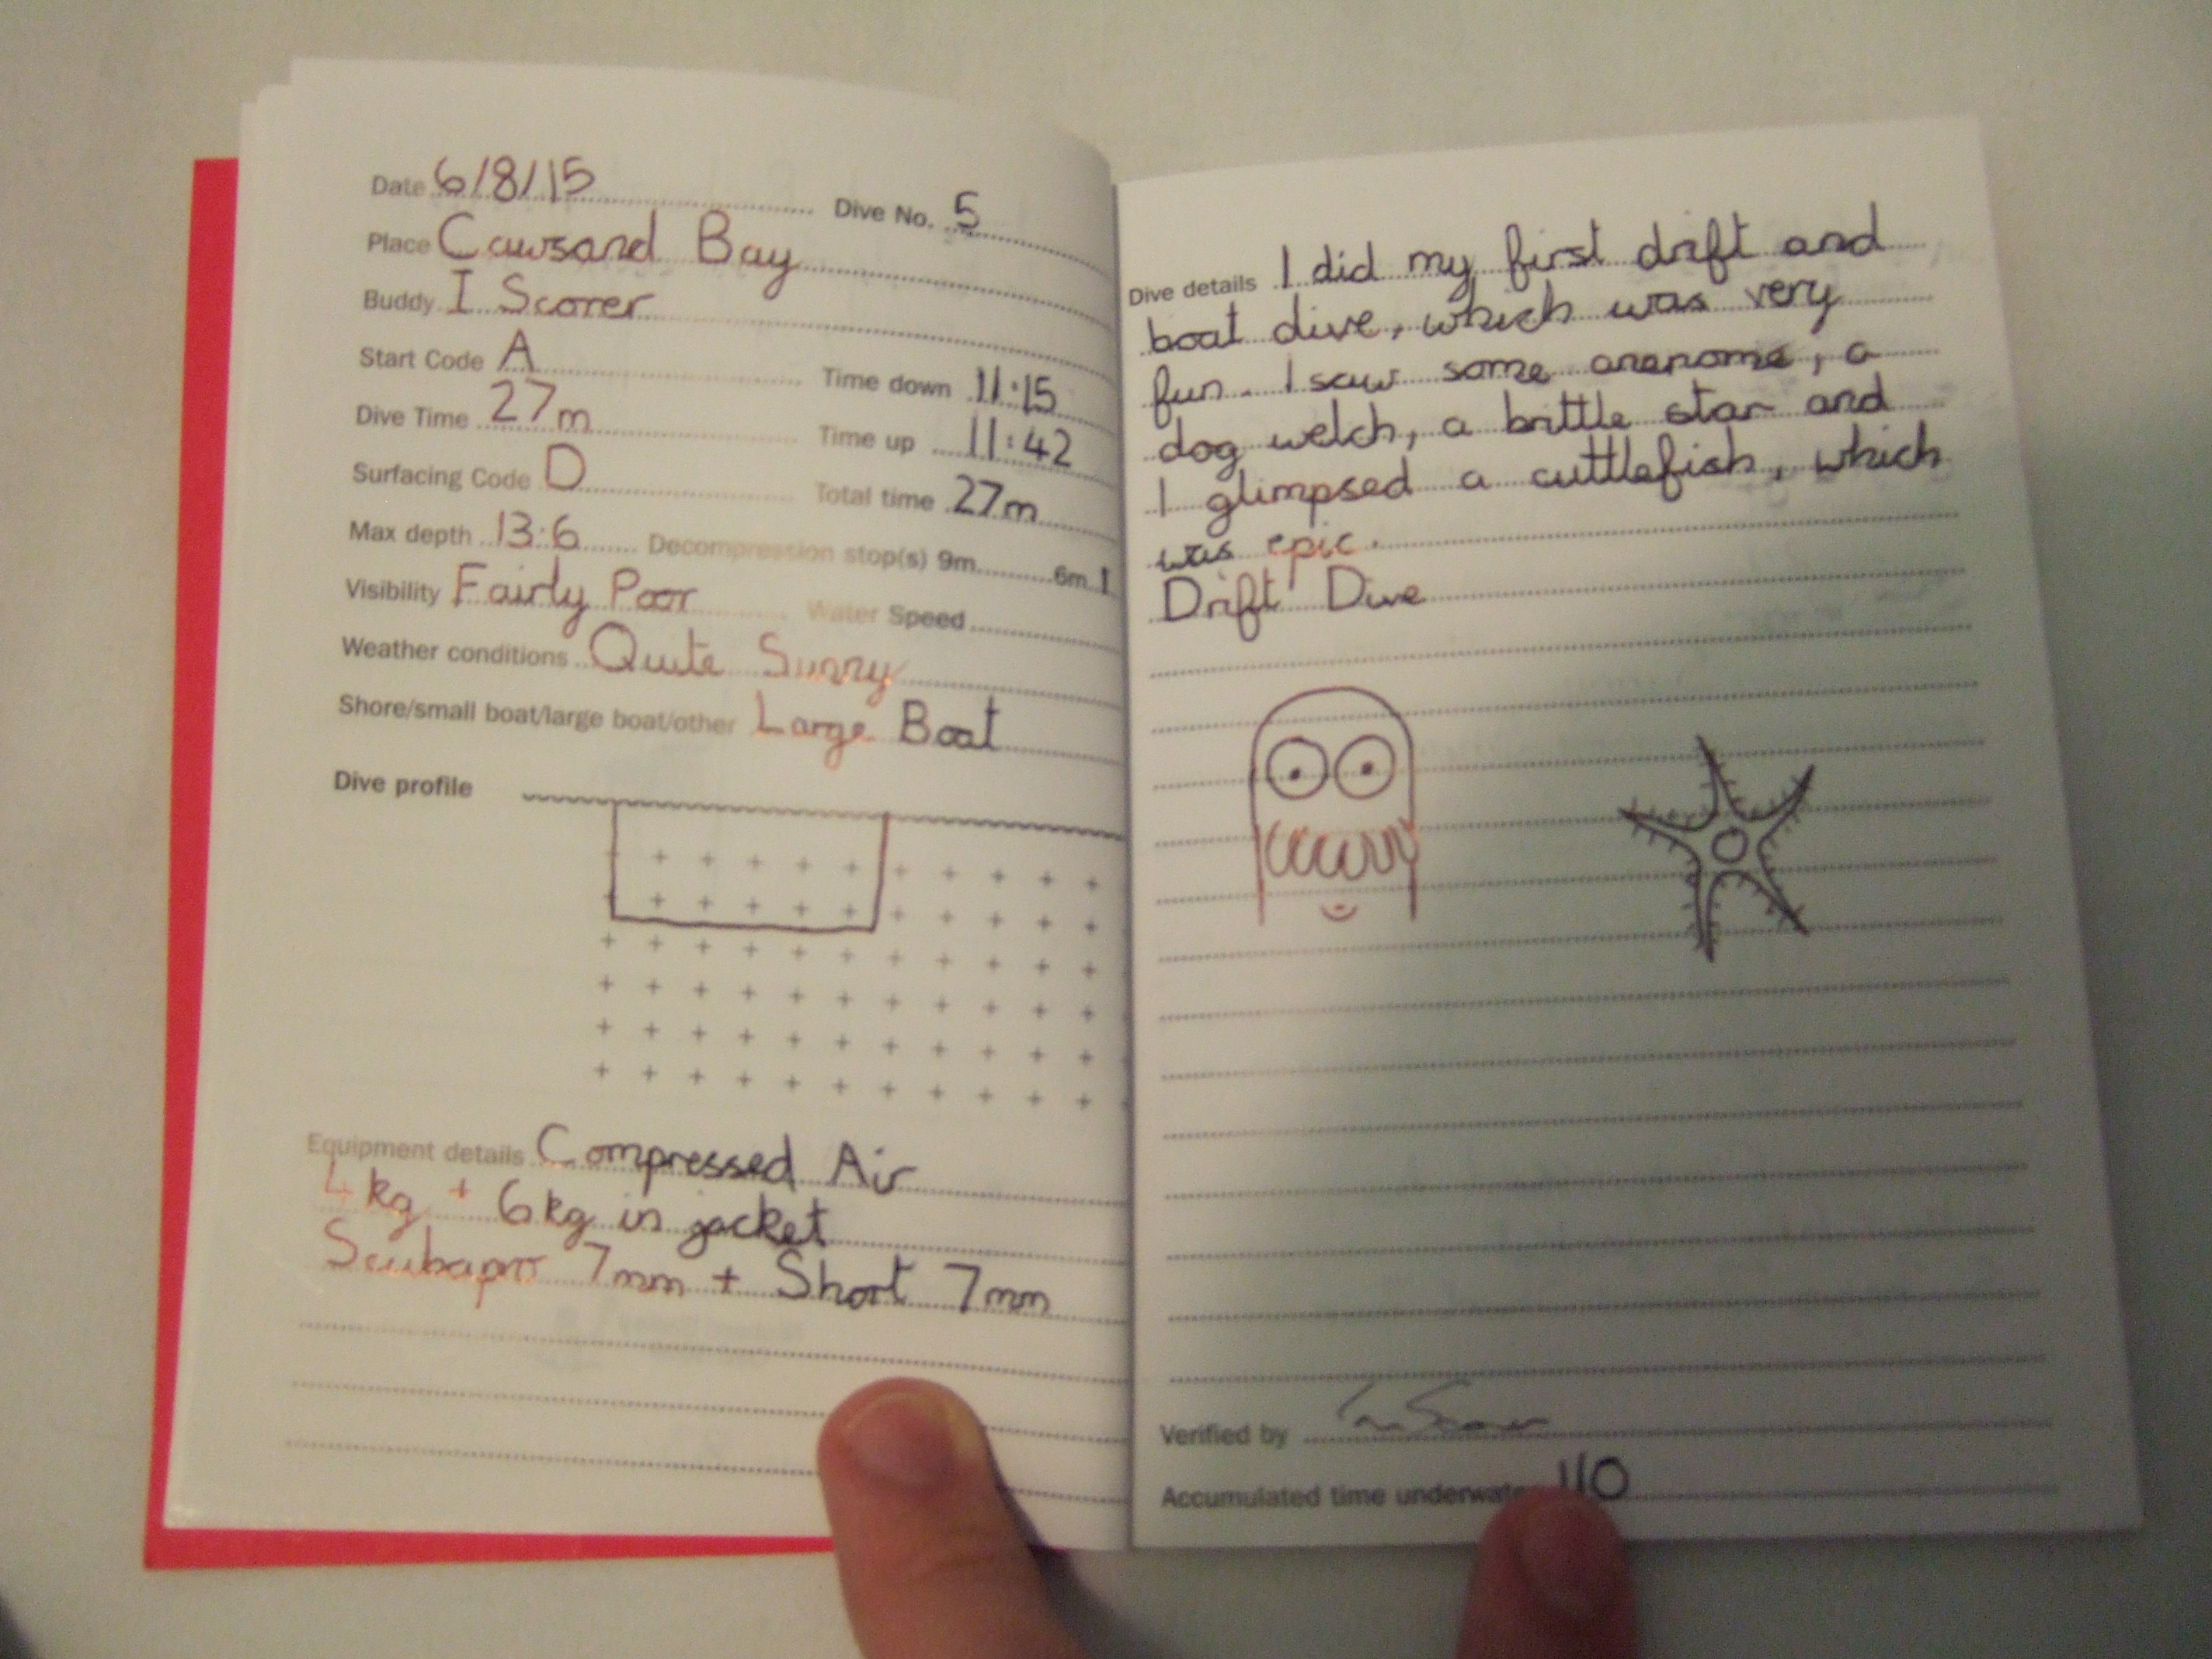 Date 6/8/15 Dive No. 5
Place Cawsand Bay
Buddy I Scorer
Start Code A Time down 11:15
Dive Time 27m Time up 11:42
Surfacing Code D Total time 27m
Max depth 13.6 Decompression stop(s) 9m 6m 1
Visibility Fairly Poor Water Speed
Weather conditions Quite Sunny
Shore/small boat/large boat/other Large Boat
Dive profile
Equipment details Compressed Air
4kg + 6kg in jacket
Scubapro 7mm + Short 7mm
Dive details I did my first drift and
boat dive, which was very
fun. I saw some anenome, a
dog welch, a brittle star and
I glimpsed a cuttlefish, which
was epic.
Drift Dive
Verified by
Accumulated time underwater 110